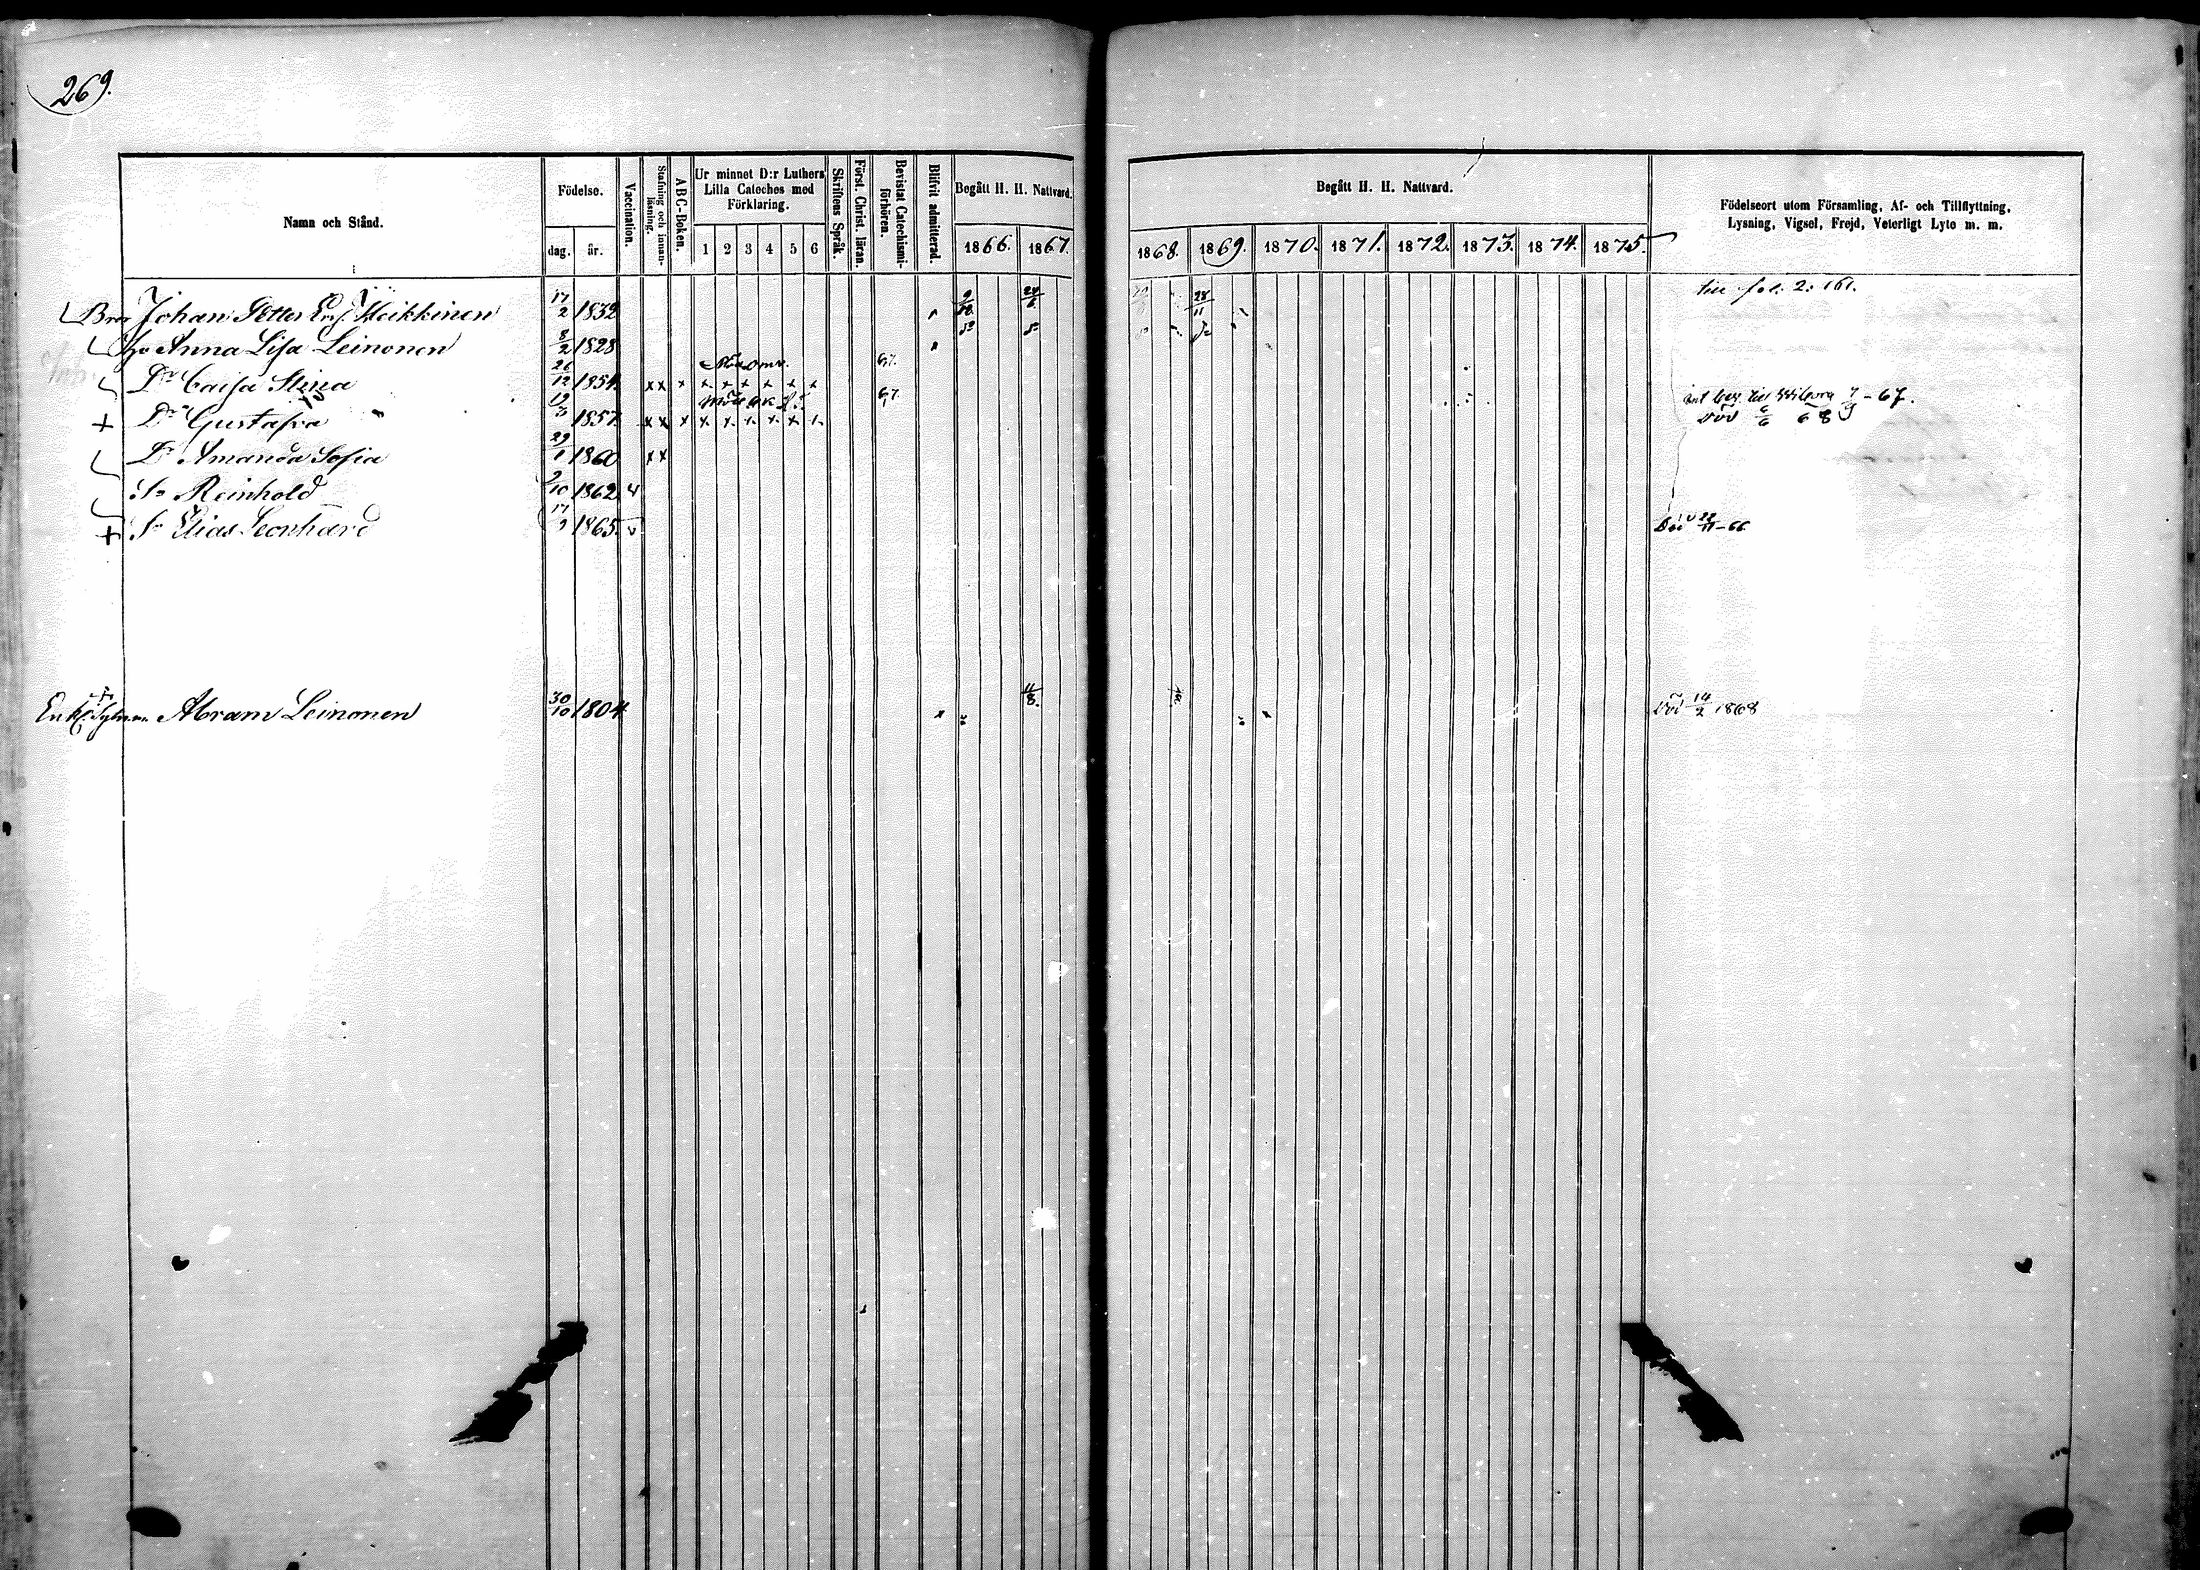 269.
Namn och Stånd.
Födelse.
dag.
år.
Vaccination.
Stafning och innanläsning.
ABC-Boken.
Ur minnet D:r Luthers Lilla Cateches med Förklaring.
1 2 3 4 5 6
Skriftens Språk.
Först. Christ. läran.
Bevistat Catechismiförhören.
Blifvit admitterad.
Begått H. H. Nattvard.
1866. 1867.
Begått H. H. Nattvard.
1868. 1869. 1870. 1871. 1872. 1873. 1874. 1875.
Födelseort utom Församling, Af- och Tillflyttning,
Lysning, Vigsel, Frejd, Veterligt Lyte m. m.
Bror Johan Petter Heikkinen 17/2 1832 9/10 24/6 28/11 till fol. 2: 161.
Anna Lisa Leinonen 8/2 1828
Dr Caisa Stina 26/12 1854 x x x x x x x x x 67.
+ Dr Gustafva 3 1857 x x x x x x x x x 67 till Wiborg 7/9 - 67.
Död 6/6 68
Dr Amanda Sofia 29/1 1860 x x
Sn Reinhold 2/10 1862 v
+ Sn Elias Leonhard 17 1865 v Död 22/11 - 66
+ Enkl. Abram Leinonen 30/10 1804 11/8. Död 14/2 1868